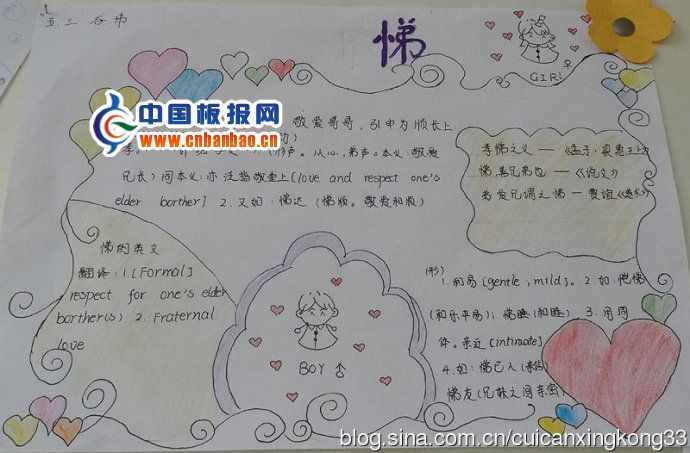 五.三 谷帅
悌
GIRL ♀
中国板报网
www.cnbanbao.cn
敬爱哥哥，引申为顺长上
形声。从心，弟声。本义：敬爱
兄长） 同本义：亦泛指敬重长上[love and respect one's
elder borther] 2.又如：悌达（悌顺。敬爱和顺）
孝悌之义 —《孟子·梁惠王上》
悌,善兄弟也 —《说文》
弟爱兄谓之悌 — 贾谊《道术》
悌的英文
翻译：1.[Formal]
respect for one's elder
borther(s) 2. Fraternal
love
BOY ♂
(形)
1.和易[gentle；mild]。2.如：恺悌
(和乐平易)；悌睦(和睦) 3.
体。亲近[intimate]
4.如：悌己人(亲
悌友(兄弟之间亲密
blog.sina.com.cn/cuicanxingkong33